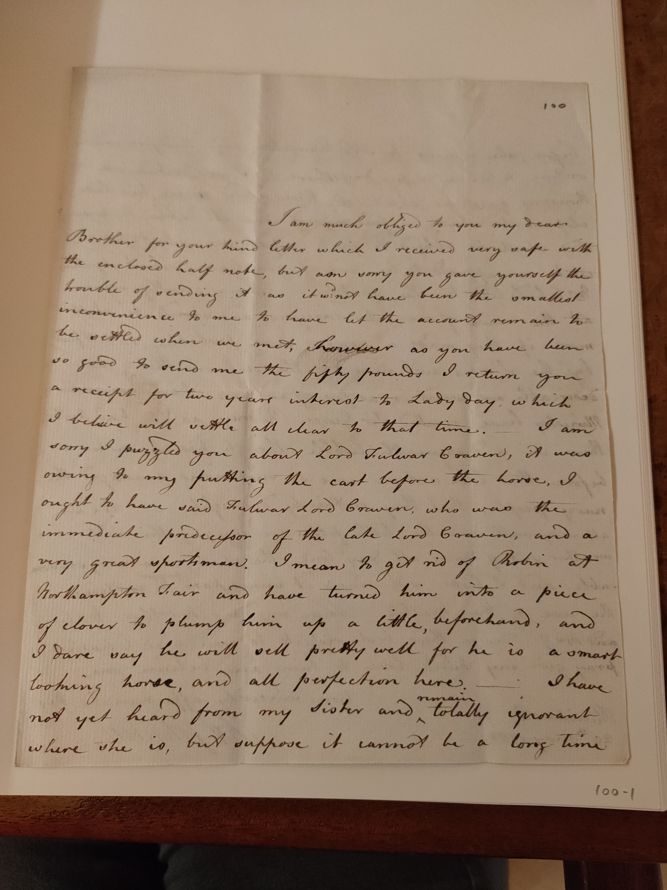 100
I am much obliged to you my dear
Brother for your kind letter which I received very safe with
the enclosed half note, but am sorry you gave yourself the
trouble of sending it as it wd not have been the smallest
inconvenience to me to have let the account remain to
be settled when we met, however as you have been
so good to send me the fifty pounds I return you
a receipt for two years interest to Lady day which
I believe will settle all clear to that time. — I am
sorry I puzzled you about Lord Fulwar Craven, it was
owing to my putting the cart before the horse, I
ought to have said Fulwar Lord Craven, who was the
immediate predecessor of the late Lord Craven, and a
very great sportsman. I mean to get rid of Robin at
Northampton Fair and have turned him into a piece
of clover to plump him up a little, beforehand, and
I dare say he will sell pretty well for he is a smart
looking horse, and all perfection here. — I have
not yet heard from my Sister and remain totally ignorant
where she is, but suppose it cannot be a long time
100-1